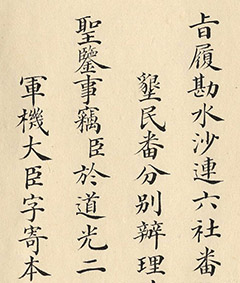 旨履勘水沙連六社番
墾民番分別辦理
聖鑒事竊臣於道光二
軍機大臣字寄本